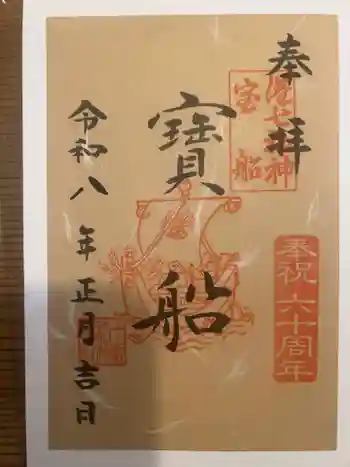 奉拝
七神
宝船
奉祝六十周年
寶船
令和八年正月吉日